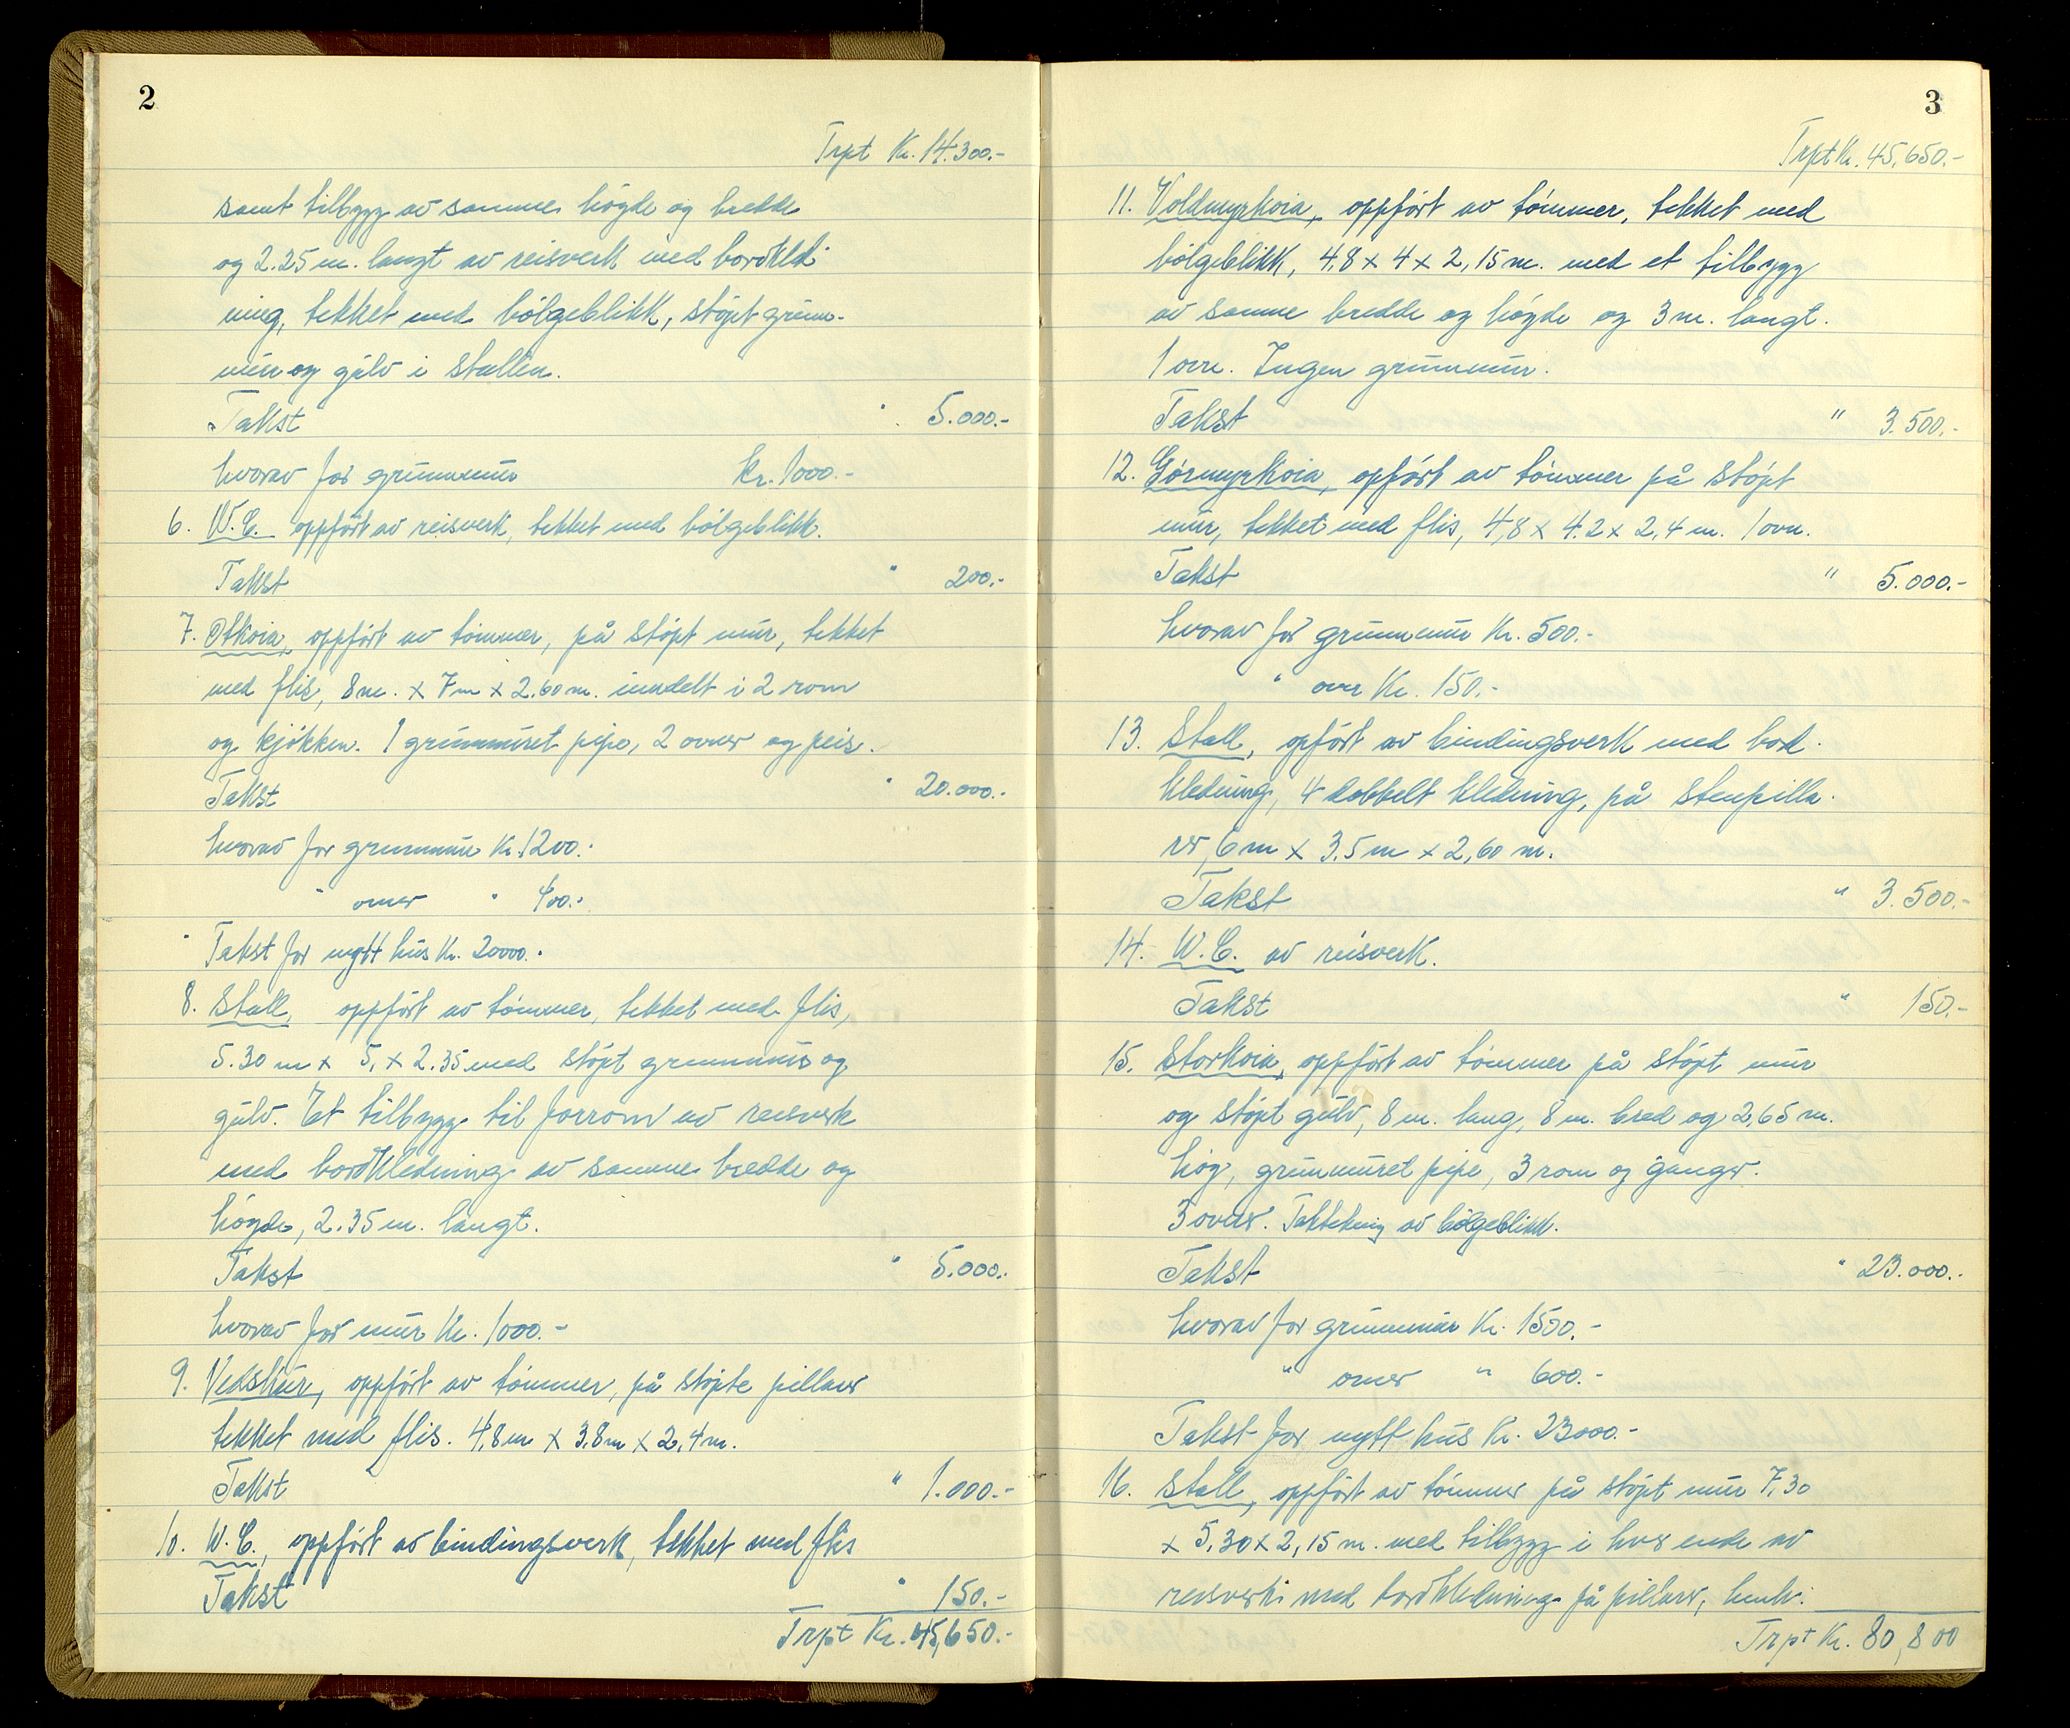 2
Trpt Kr. 14.300.-
samt tilbygg av samme högde og bredde
og 2.25 m. langt av reisverk med bordkled-
ning, tekket med bölgeblikk, stöpt grunn-
mur og gulv i stallen.
Takst " 5.000.-
hvorav for grunnmur kr. 1000.-
6. W.C. oppfört av reisverk, tekket med bölgeblikk.
Takst " 200.-
7. Otkoia, oppfört av tömmer, på stöpt mur, tekket
med flis, 8 m. x 7 m x 2.60 m. inndelt i 2 rom
og kjökken. 1 grunnmuret pipe, 2 ovner og peis.
Takst " 20.000.-
hvorav for grunnmur Kr. 1200.-
" ovner " 400.-
" Takst for nytt hus Kr. 20000.-
8. Stall, oppfört av tömmer, tekket med flis,
5.30 m x 5, x 2.35 med stöpt grunnmur og
gulv. Et tilbygg til forrom av reisverk
med bordkledning av samme bredde og
högde, 2.35 m. langt.
Takst " 5.000.-
hvorav for mur Kr. 1000.-
9. Vedskur, oppfört av tömmer, på stöpte pillarer
tekket med flis. 4,8 m x 3,8 m x 2,4 m.
Takst " 1.000.-
10. W.C., oppfört av bindingsverk, tekket med flis
Takst " 150.-
Trpt Kr. 45,650.-
3
Trpt Kr. 45.650.-
11. Voldmyrkoia, oppfört av tömmer, tekket med
bölgeblikk, 4,8 x 4 x 2,15 m. med et tilbygg
av samme bredde og högde og 3 m. langt.
1 ovn. Ingen grunnmur.
Takst " 3.500.-
12. Görmyrkoia, opfört av tömmer på stöpt
mur, tekket med flis, 4,8 x 4.2 x 2,4 m. 1 ovn.
Takst " 5.000.-
hvorav for grunnmur Kr. 500.-
" ovn Kr. 150.-
13. Stall, opfört av bindingsverk med bord-
kledning, 4 dobbelt kledning, på stenpilla-
rer, 6 m x 3.5 m x 2,60 m.
Takst " 3.500.-
14. W.C. av reisverk.
Takst " 150.-
15. Storkoia, oppfört av tömmer på stöpt mur
og stöpt gulv, 8 m. lang, 8 m. bred og 2,65 m.
hög, grunnmuret pipe, 3 rom og ganger.
3 ovner. Taktekning av bölgeblikk.
Takst " 23.000.-
hvorav for grunnmur Kr. 1500.-
" ovner " 600.-
Takst for nytt hus Kr. 23000.-
16. Stall, oppfört av tömmer på stöpt mur 7,30
x 5,30 x 2,15 m. med tilbygg i hver ende av
reisverk med bordkledning på pillarer, henh.
Trpt Kr. 80,800